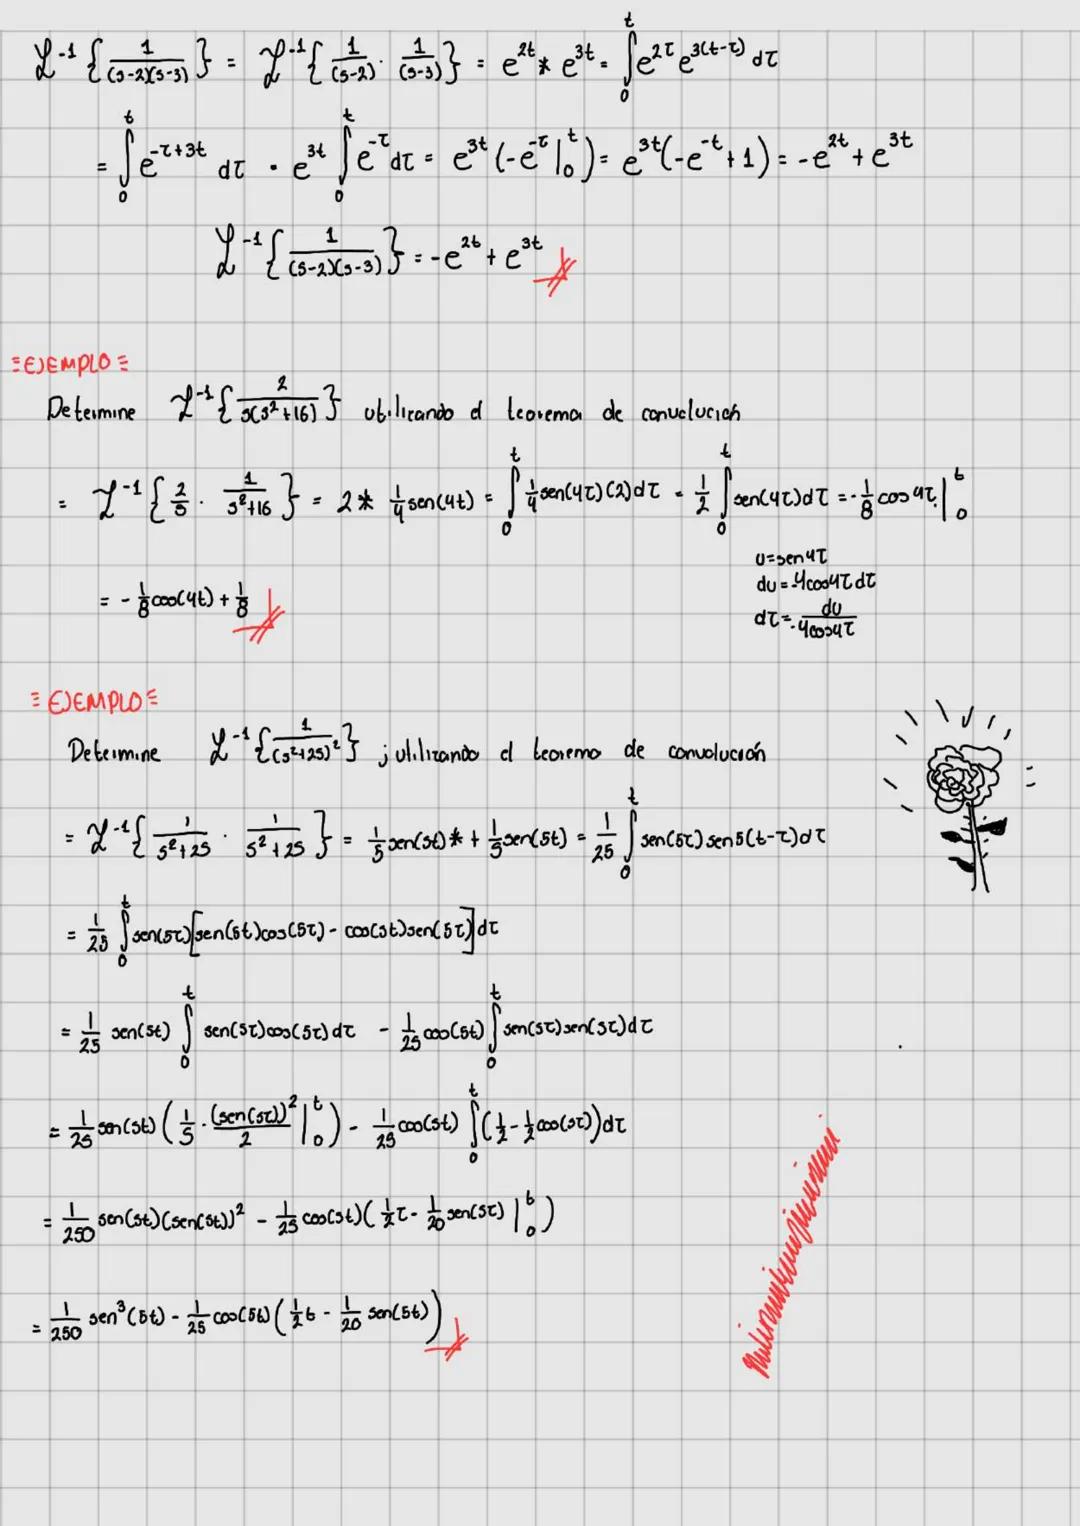 ℒ⁻¹{1/((s-2)(s-3))} = ℒ⁻¹{1/(s-2) · 1/(s-3)} = e^{2t} * e^{3t} = ∫₀ᵗ e^{2τ} e^{3(t-τ)} dτ
= ∫₀ᵗ e^{-τ+3t} dτ = e^{3t} ∫₀ᵗ e^{-τ} dτ = e^{3t}(-e^{-τ}|₀ᵗ) = e^{3t}(-e^{-t}+1) = -e^{2t} + e^{3t}
ℒ⁻¹{1/((s-2)(s-3))} = -e^{2t} + e^{3t}
=EJEMPLO=
Determine ℒ⁻¹{2/(s(s²+16))} utilizando el teorema de convolución
= ℒ⁻¹{2/s · 1/(s²+16)} = 2 * 1/4 sen(4t) = ∫₀ᵗ 1/4 sen(4τ)(2)dτ = 1/2 ∫₀ᵗ sen(4τ)dτ = -1/8 cos 4τ |₀ᵗ
u=sen4τ
du=-4cos4τdτ
dτ=du/-4cos4τ
= -1/8 cos(4t) + 1/8
=EJEMPLO=
Determine ℒ⁻¹{1/(s²+25)²} ; utilizando el teorema de convolución
= ℒ⁻¹{1/(s²+25) · 1/(s²+25)} = 1/5 sen(5t) * + 1/5 sen(5t) = 1/25 ∫₀ᵗ sen(5τ) sen5(t-τ)dτ
= 1/25 ∫₀ᵗ sen(5τ)[sen(5t)cos(5τ) - cos(5t)sen(5τ)]dτ
= 1/25 sen(5t) ∫₀ᵗ sen(5τ)cos(5τ)dτ - 1/25 cos(5t) ∫₀ᵗ sen(5τ)sen(5τ)dτ
= 1/25 sen(5t) (1/5 · (sen(5τ))²/2 |₀ᵗ) - 1/25 cos(5t) ∫₀ᵗ (1/2 - 1/2 cos(5τ))dτ
= 1/250 sen(5t)(sen(5t))² - 1/25 cos(5t)(1/2 τ - 1/20 sen(5τ) |₀ᵗ)
= 1/250 sen³(5t) - 1/25 cos(5t)(1/2 t - 1/20 sen(5t))